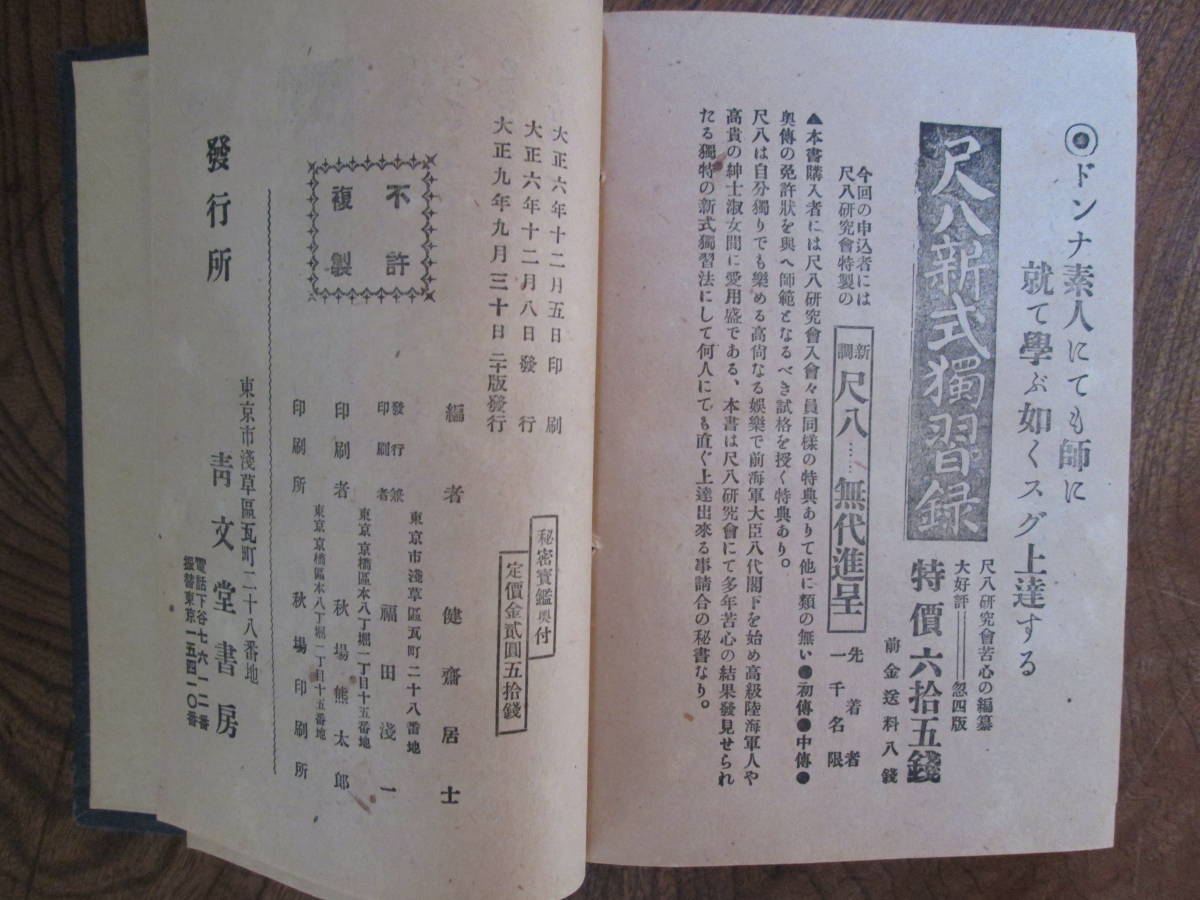 ◉ドンナ素人にても師に
就て學ぶ如くスグ上達する
尺八新式獨習録
尺八研究會苦心の編纂
大好評══忽四版
特價六拾五錢
前金送料八錢
今回の申込者には
尺八研究會特製の
新調 尺八……無代進呈
先着者
一千名限
▲本書購入者には尺八研究會入會々員同樣の特典ありて他に類の無い●初傳●中傳●
奥傳の免許狀を與へ師範となるべき試格を授く特典あり。
尺八は自分獨りでも樂める高尙なる娯樂で前海軍大臣八代閣下を始め高級陸海軍人や
高貴の紳士淑女間に愛用盛である、本書は尺八研究會にて多年苦心の結果發見せられ
たる獨特の新式獨習法にして何人にても直ぐ上達出來る事請合の秘書なり。
大正六年十二月五日印刷
大正六年十二月八日發行
大正九年九月三十日二十版發行
秘密寳鑑奥付
定價金貳圓五拾錢
不許
複製
編者 健齋居士
東京市淺草區瓦町二十八番地
發行兼印刷者 福田淺一
東京京橋區本八丁堀二丁目十五番地
印刷者 秋場熊太郎
東京京橋區本八丁堀二丁目十五番地
印刷所 秋場印刷所
東京市淺草區瓦町二十八番地
發行所 靑文堂書房
電話下谷七六一二番
振替東京一五四一〇番